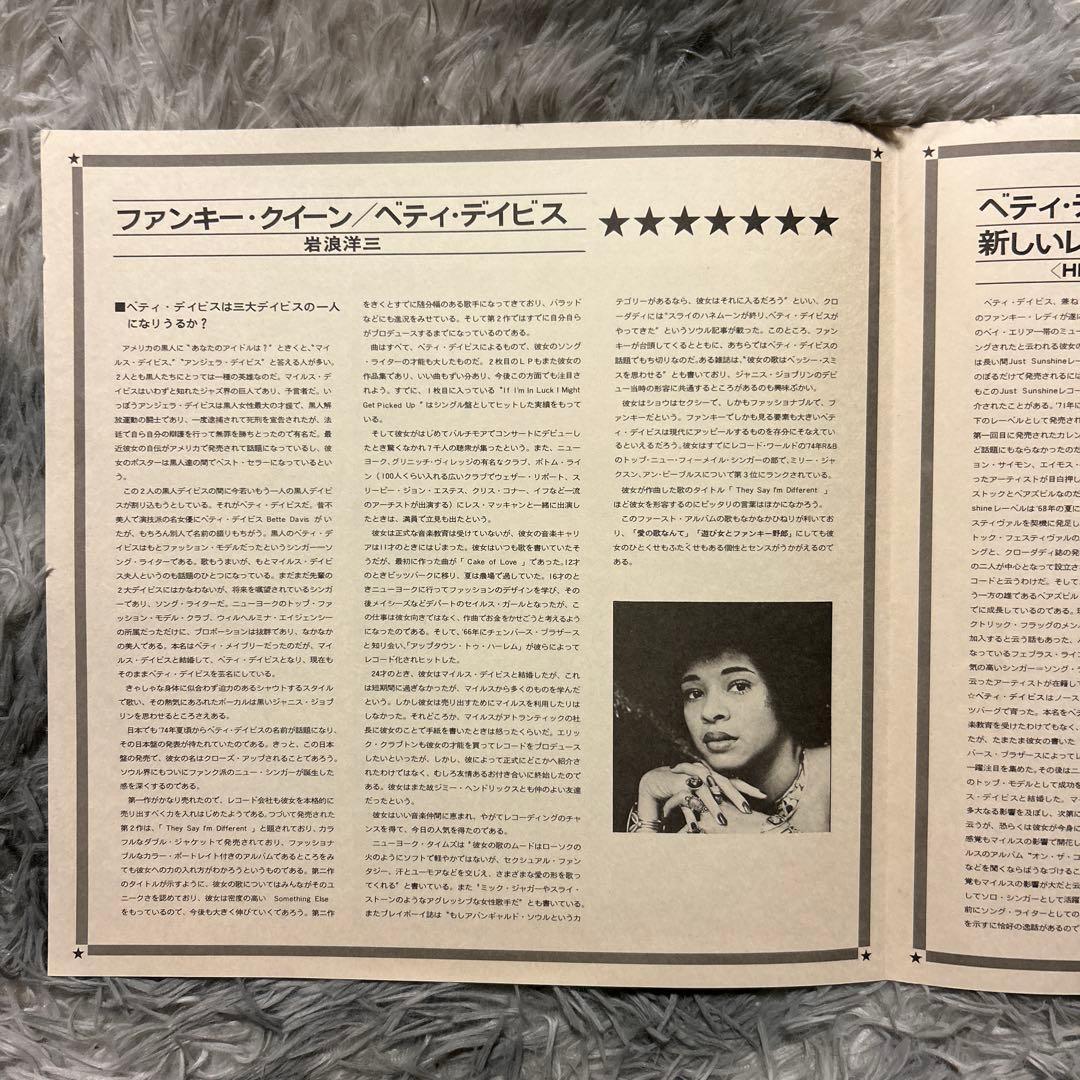 ファンキー・クイーン／ベティ・デイビス
★★★★★★★
岩浪洋三
■ベティ・デイビスは三大デイビスの一人
になりうるか？
アメリカの黒人に“あなたのアイドルは？”ときくと、“マイ
ルス・デイビス，”“アンジェラ・デイビス”と答える人が多い。
2人とも黒人たちにとっては一種の英雄なのだ。マイルス・デ
イビスはいわずと知れたジャズ界の巨人であり、予言者だ。い
っぽうアンジェラ・デイビスは黒人女性最大の才媛で、黒人解
放運動の闘士であり、一度逮捕されて死刑を宣告されたが、法
廷で自ら自分の辯護を行って無罪を勝ちとったので有名だ。最
近彼女の自伝がアメリカで発売されて話題になっているし、彼
女のポスターは黒人達の間でベスト・セラーになっているとい
う。
この2人の黒人デイビスの間に今若いもう一人の黒人デイビ
スが割り込もうとしている。それがベティ・デイビスだ。昔不
美人で演技派の名女優にベティ・デイビス Bette Davis がい
たが、もちろん別人で名前の綴りもちがう。黒人のベティ・デ
イビスはもとファッション・モデルだったというシンガー＝ソ
ング・ライターである。歌もうまいが、もとマイルス・デイビ
ス夫人というのも話題のひとつになっている。まだまだ先輩の
2大デイビスにはかなわないが、将来を嘱望されているシンガ
ーであり、ソング・ライターだ。ニューヨークのトップ・ファ
ッション・モデル・クラブ、ウィルヘルミナ・エイジェンシー
の所属だっただけに、プロポーションは抜群であり、なかなか
の美人である。本名はベティ・メイブリーだったのだが、マイ
ルス・デイビスと結婚して、ベティ・デイビスとなり、現在も
そのままベティ・デイビスを芸名にしている。
きゃしゃな身体に似合わず迫力のあるシャウトするスタイル
で歌い、その熱気にあふれたボーカルは黒いジャニス・ジョプ
リンを思わせるところさえある。
日本でも'74年夏頃からベティ・デイビスの名前が話題になり、
その日本盤の発表が待たれていたのである。きっと、この日本
盤の発売で、彼女の名はクローズ・アップされることであろう。
ソウル界にもついにファンク派のニュー・シンガーが誕生した
感を深くするのである。
第一作がかなり売れたので、レコード会社も彼女を本格的に
売り出すべく力を入れはじめたようである。つづいて発売された
第2作は、「They Say I'm Different 」と題されており、カラ
フルなダブル・ジャケットで発売されており、ファッショナブ
ルなカラー・ポートレイト付きのアルバムであるところをみ
ても彼女への力の入れ方がわかろうというものである。第二作
のタイトルが示すように、彼女の歌についてはみんながそのユ
ニークさを認めており、彼女は密度の高い Something Else
をもっているので、今後も大きく伸びていくであろう。第二作
をきくとすでに随分幅のある歌手になってきており、バラッド
などにも進況をみせている。そして第2作ではすでに自分自ら
がプロデュースするまでになっているのである。
曲はすべて、ベティ・デイビスによるもので、彼女のソング
・ライターの才能も大したものだ。2枚目のLPもまた彼女の
作品集であり、いい曲もずい分あり、今後この方面でも注目さ
れよう。すでに、1枚目に入っている“If I'm In Luck I Might
Get Picked Up ”はシングル盤としてヒットした実績をもって
いる。
そして彼女がはじめてバルチモアでコンサートにデビューし
たとき驚くなかれ7千人の聴衆が集ったという。また、ニュー
ヨーク、グリニッチ・ヴィレッジの有名なクラブ、ボトム・ライ
ン（100人くらい入れる広いクラブでウェザー・リポート、ス
リーピー・ジョン・エステス、クリス・コナー、イフなど一流
のアーチストが出演する）にレス・マッキャンと一緒に出演し
たときは、満員で立見も出たという。
彼女は正式な音楽教育は受けていないが、彼女の音楽キャリ
アは11才のときにはじまった。彼女はいつも歌を書いていたそ
うだが、最初に作った曲が「Cake of Love 」であった。12才
のときピッツバークに移り、夏は農場で過していた。16才のと
きニューヨークに行ってファッションのデザインを学び、その
後メイシーズなどデパートのセイルス・ガールとなったが、こ
の仕事は彼女向きではなく、作曲でお金をかせごうと考えるよう
になったのである。そして、'66年にチェンバース・ブラザース
と知り会い、「アップタウン・トゥ・ハーレム」が彼らによって
レコード化されヒットした。
24才のとき、彼女はマイルス・デイビスと結婚したが、これ
は短期間に過ぎなかったが、マイルスから多くのものを学んだ
という。しかし彼女は売り出すためにマイルスを利用したりは
しなかった。それどころか、マイルスがアトランティックの社
長に彼女のことで手紙を書いたときは怒ったくらいだ。エリッ
ク・クラプトンも彼女の才能を買ってレコードをプロデュース
したいといったが、しかし、彼によって正式にどこかへ紹介さ
れたわけではなく、むしろ友情あるお付き合いに終始したので
ある。彼女はまた故ジミー・ヘンドリックスとも仲のよい友達
だったという。
彼女はいい音楽仲間に恵まれ、やがてレコーディングのチャ
ンスを得て、今日の人気を得たのである。
ニューヨーク・タイムズは“彼女の歌のムードはローソクの
火のようにソフトで軽やかではないが、セクシュアル・ファン
タジー、汗とユーモアなどを交じえ、さまざまな愛の形を歌っ
てくれる”と書いている。また“ミック・ジャガーやスライ・
ストーンのようなアグレッシブな女性歌手だ”とも書いている。
またプレイボーイ誌は“もしアバンギャルド・ソウルというカ
テゴリーがあるなら、彼女はそれに入るだろう”といい、クロ
ーダディには“スライのハネムーンが終り、ベティ・デイビスが
やってきた”というソウル記事が載った。このところ、ファン
キーが台頭してくるとともに、あちらではベティ・デイビスの
話題でもち切りなのだ。ある雑誌は、“彼女の歌はベッシー・スミ
スを思わせる”とも書いており、ジャニス・ジョプリンのデビ
ュー当時の形容に共通するところがあるのも興味ぶかい。
彼女はショウはセクシーで、しかもファッショナブルで、フ
ァンキーだという。ファンキーでしかも見る要素も大きいベテ
ィ・デイビスは現代にアッピールするものを存分にそなえてい
るといえるだろう。彼女はすでにレコード・ワールドの'74年R&B
のトップ・ニュー・フィーメイル・シンガーの部で、ミリー・ジャ
クスン、アン・ピーブルスについで第3位にランクされている。
彼女が作曲した歌のタイトル「They Say I'm Different 」
ほど彼女を形容するのにピッタリの言葉はほかになかろう。
このファースト・アルバムの歌もなかなかひねりが利いてお
り、「愛の歌なんて」「遊び女とファンキー野郎」にしても彼
女のひとくせもふたくせもある個性とセンスがうかがえるので
ある。
ベティ・デ
新しいレ
ベティ・デイビス、兼ね
のファンキー・レディが遂に
のベイ・エリア一帯のミュー
ングされたと云われる彼女の
は長い間Just Sunshineレー
のぼるだけで発売されるには
もこのJust Sunshineレコー
介されたことがある。'71年に
下のレーベルとして発売され
第一回目に発売されたカレン
ど話題にもならなかったのだ
ョン・サイモン、エイモス・
ったアーティストが目白押し
ストックとベアズビルなのだ
shineレーベルは'68年の夏に
スティヴァルを契機に発足し
トック・フェスティヴァルの
ングと、クローダディ誌の発
の二人が中心となって設立さ
コードと云うわけだ。そして
う一方の雄であるベアズビル
でに成長しているのである。
クトリック・フラッグのメン
加入すると云う話もあった、
なっているフェブラス・ライ
気の高いシンガー＝ソング・
云ったアーティストが在籍して
☆ベティ・デイビスはノース
ツバーグで育った。本名をベ
楽教育を受けたわけでもなく、
たが、たまたま彼女の書いた
バース・ブラザースによってレ
一躍注目を集めた。その後はニ
のトップ・モデルとして成功を
ス・デイビスと結婚した。マ
多大なる影響を及ぼし、次第に
云うが、恐らくは彼女が今身に
感覚もマイルスの影響で開花し
ルスのアルバム“オン・ザ・コ
などを聞くならばうなづけるこ
覚もマイルスの影響が大だと云
してソロ・シンガーとして活躍
前にソング・ライターとしての
を示すに恰好の逸話があるので